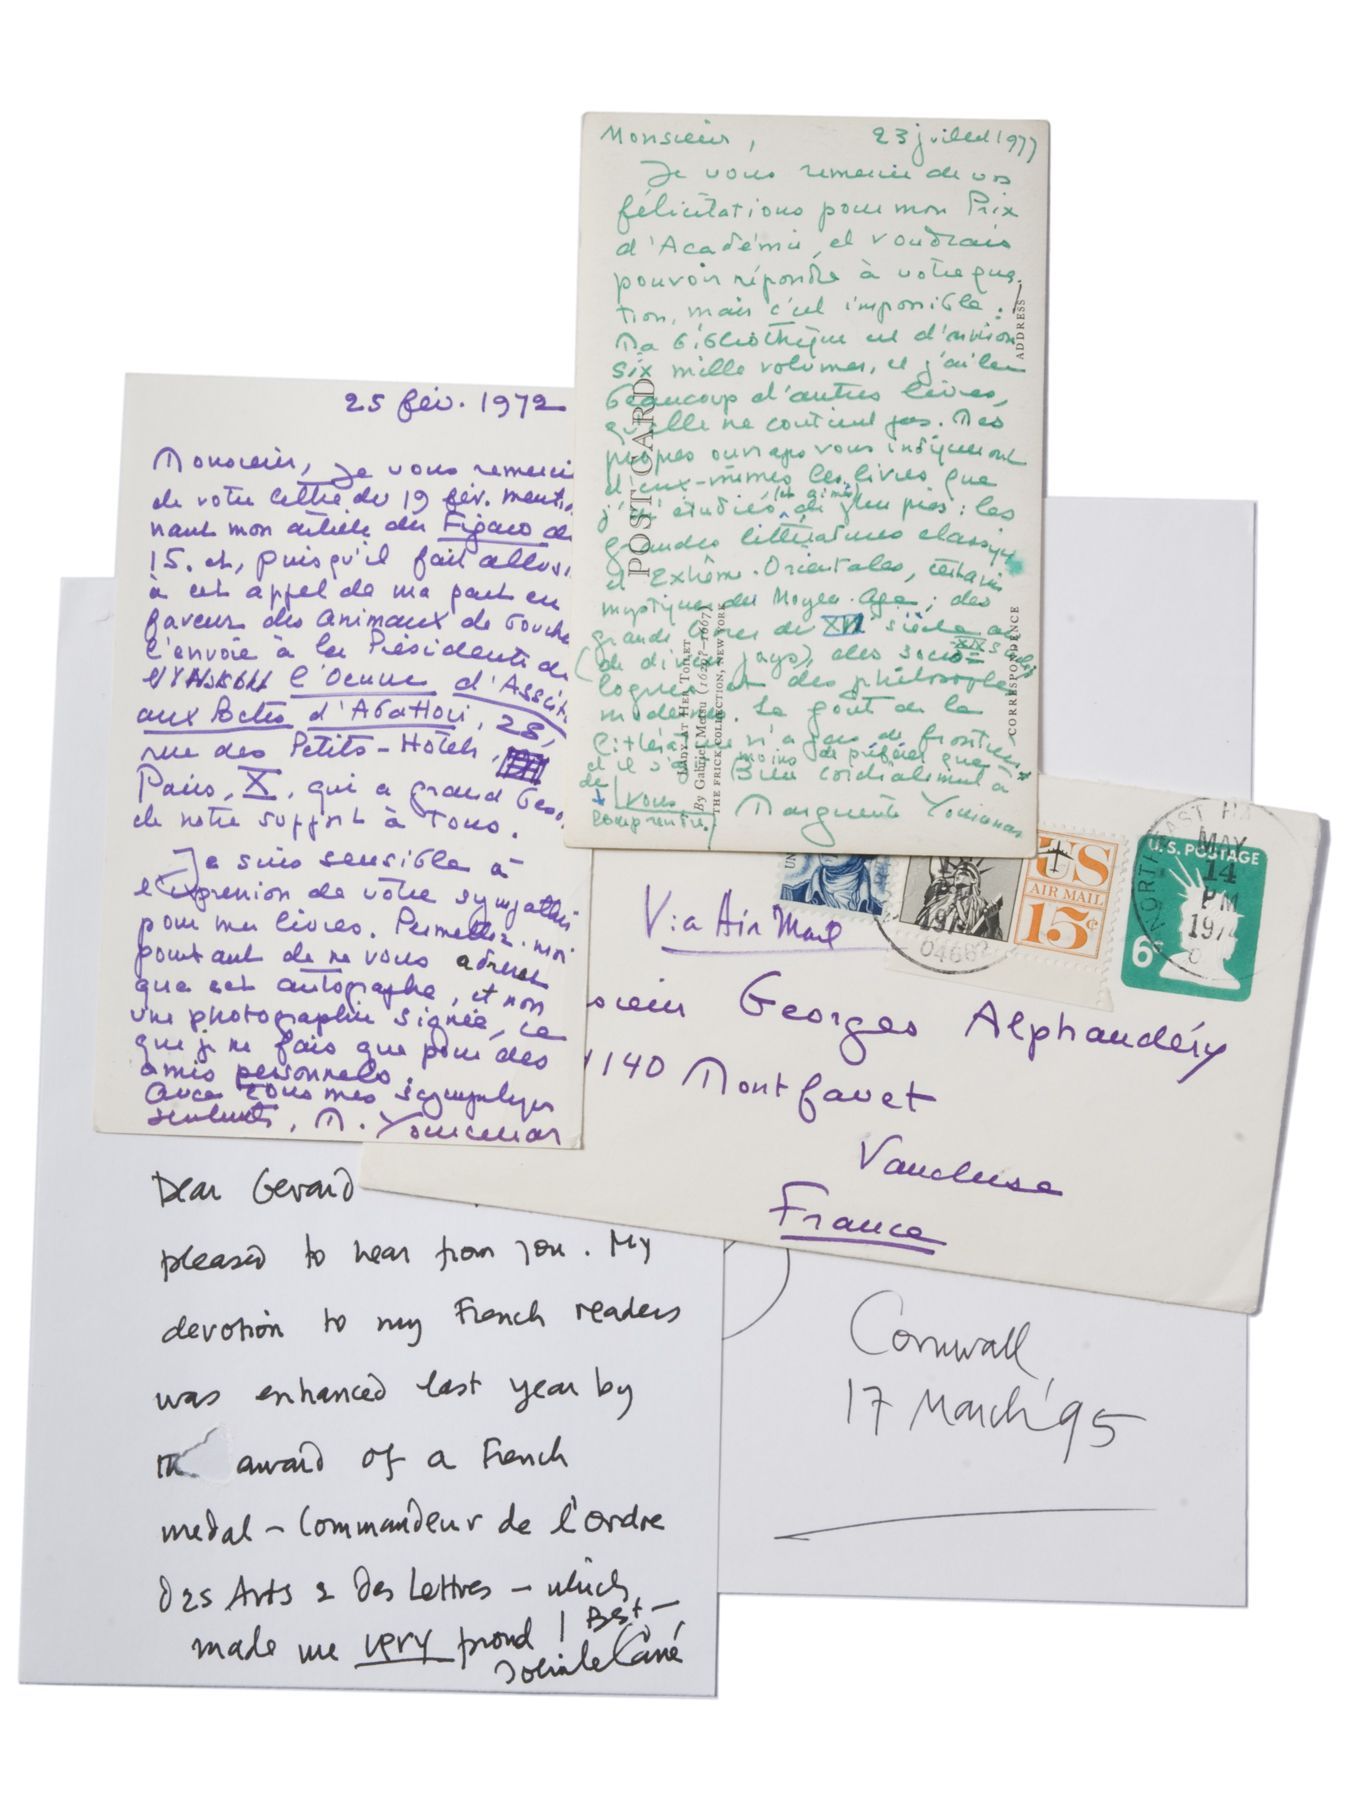 Monsieur, 23 juillet 1977
Je vous remercie de vos
félicitations pour mon Prix
d'Académie, et voudrais
pouvoir répondre à votre ques-
tion, mais c'est impossible.
Ma bibliothèque est d'environ
six mille volumes, et j'ai lu
beaucoup d'autres livres,
qu'elle ne contient pas. Mes
propres ouvrages vous indiqueront
d'eux-mêmes les livres que
j'ai étudiés (et aimés) de plus près : les
grandes littératures classiques
et Extrême-Orientales, certains
mystiques du Moyen-Age ; des
grandes du XIXe siècle
(de divers pays), des socio-
logues et des philosophes
modernes. Le goût de la
littérature n'a pas de frontières
et il s'a moins de préféré que
de vous Bien cordialement à
comprendre. Marguerite Yourcenar
POST CARD
ADDRESS
CORRESPONDENCE
LADY AT HER TOILET
By Gabriel Metsu (1629?–1667)
THE FRICK COLLECTION, NEW YORK
25 fév. 1972
Monsieur, je vous remercie
de votre lettre du 19 fév. mention
nant mon article du Figaro du
15. et, puisqu'il fait allus
à cet appel de ma part en
faveur des animaux de bouche
l'envoie à la Présidente de
l'Oeuvre d'Assist
aux Bêtes d'Abattoir, 28,
rue des Petits-Hôtels,
Paris, X, qui a grand beso
de notre support à tous.
Je suis sensible à
l'expression de votre sympathie
pour mes livres. Permettez-moi
pourtant de ne vous adresser
que cet autographe, et non
une photographie signée, ce
que je ne fais que pour des
amis personnels.
avec tous mes sympathiques
sentiments, M. Yourcenar
US
AIR MAIL
15¢
U.S. POSTAGE
6¢
NORTHEAST HA
MAY
14
PM
1974
04662
Via Air Mail
sieur Georges Alphandéry
1140 Montfavet
Vaucluse
France
Dear Gerard
pleased to hear from you. My
devotion to my French readers
was enhanced last year by
the award of a French
medal – Commandeur de l'Ordre
des Arts & des Lettres – which
made me very proud! Best –
John le Carré
Cornwall
17 March '95